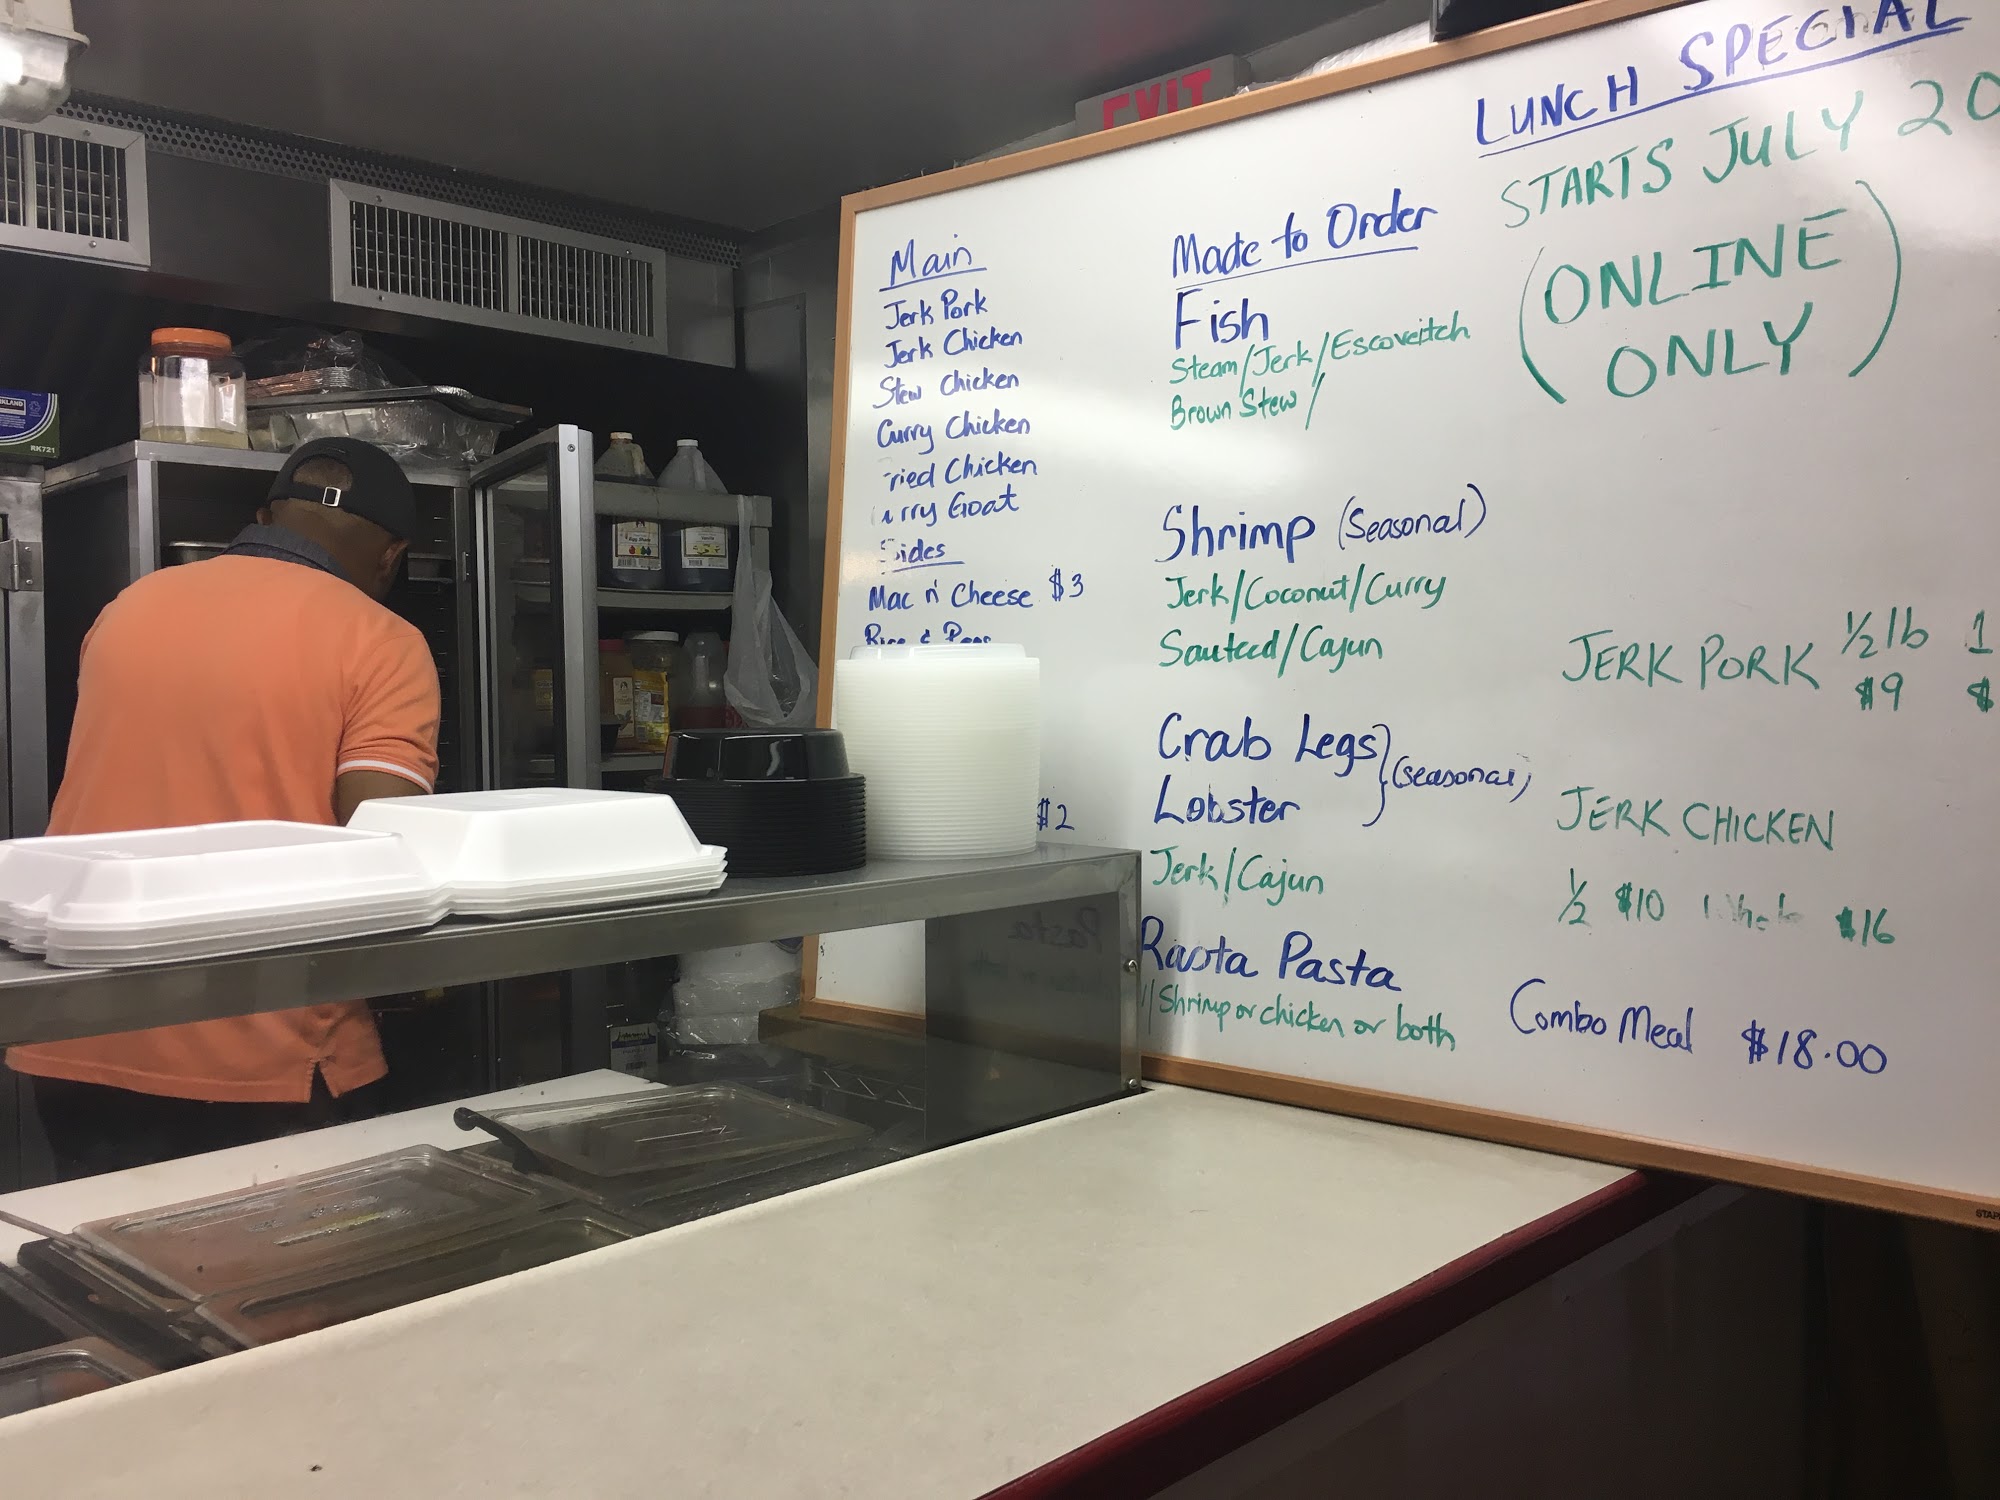 EXIT
LUNCH SPECIAL
STARTS JULY 20
(ONLINE
ONLY)
Main
Jerk Pork
Jerk Chicken
Stew Chicken
Curry Chicken
ried Chicken
urry Goat
Sides
Mac n' Cheese $3
Rice & Peas
$2
Made to Order
Fish
Steam/Jerk/Escoveitch
Brown Stew/
Shrimp (Seasonal)
Jerk/Coconut/Curry
Sauteed/Cajun
Crab Legs
Lobster
(seasonal)
Jerk/Cajun
Rasta Pasta
Shrimp or chicken or both
JERK PORK 1/2 lb 1
$9 $
JERK CHICKEN
1/2 $10 Whole $16
Combo Meal $18.00
RK721
STAP